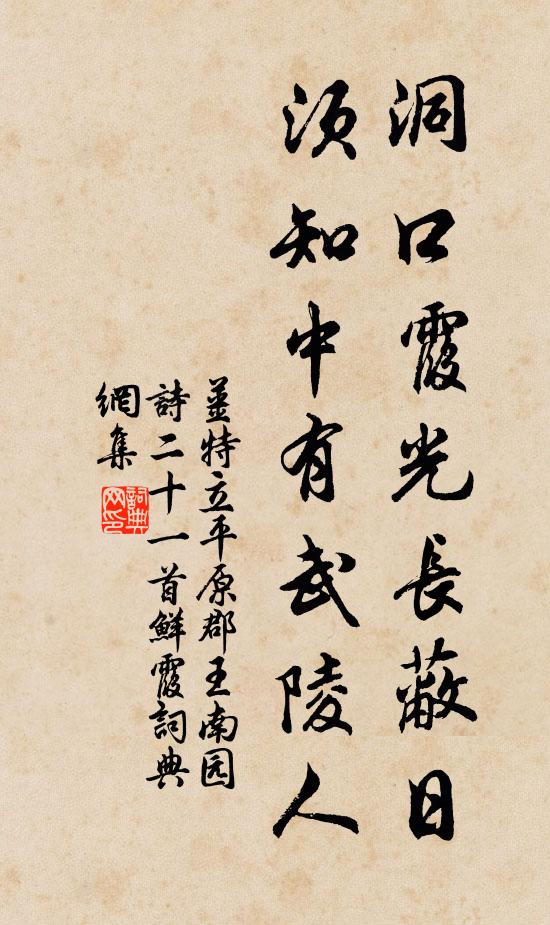 洞口霞光長蔽日
須知中有武陵人
姜特立平原郡王南园
詩二十一首鮮霞詞典
網集
詞典網印